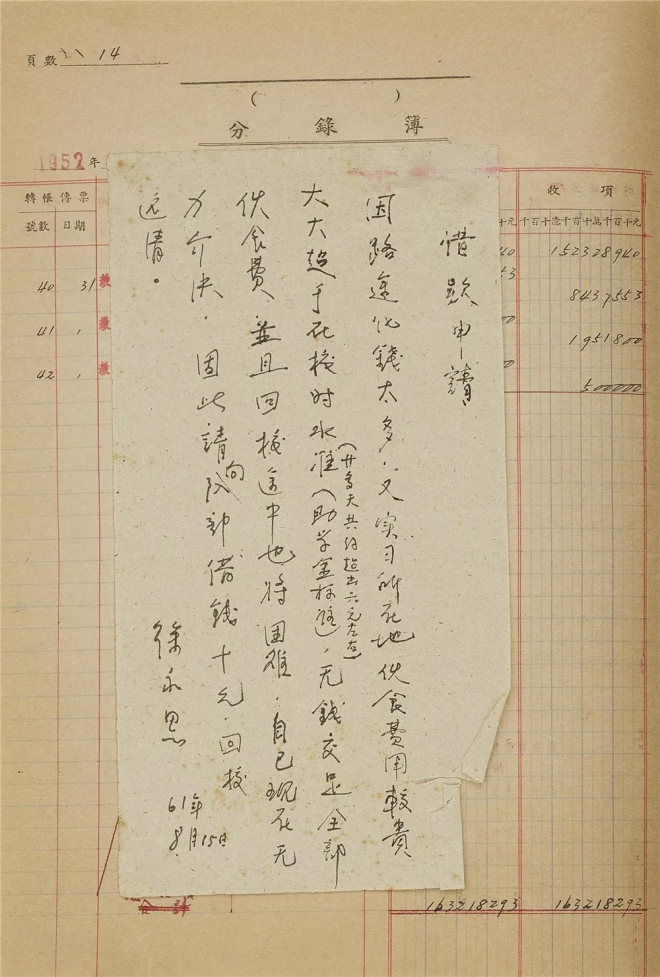 頁數 14
( )
分錄簿
1952年
轉帳傳票
號數 日期
收項
千百十億千百十萬千百十元
40 31
41
42
152328940
8437553
1951800
500000
163218293 163218293
借款申請
因路途化錢太多,又实习所在地伙食費用較貴
大大超于在校时水准(助学金标准),无錢交足全部
(廿多天共約超出六元左右)
伙食費,並且回校途中也將困难,自己現在无
力介决,因此請向队部借錢十元,回校
还清。
徐永恩
61年
8月15日